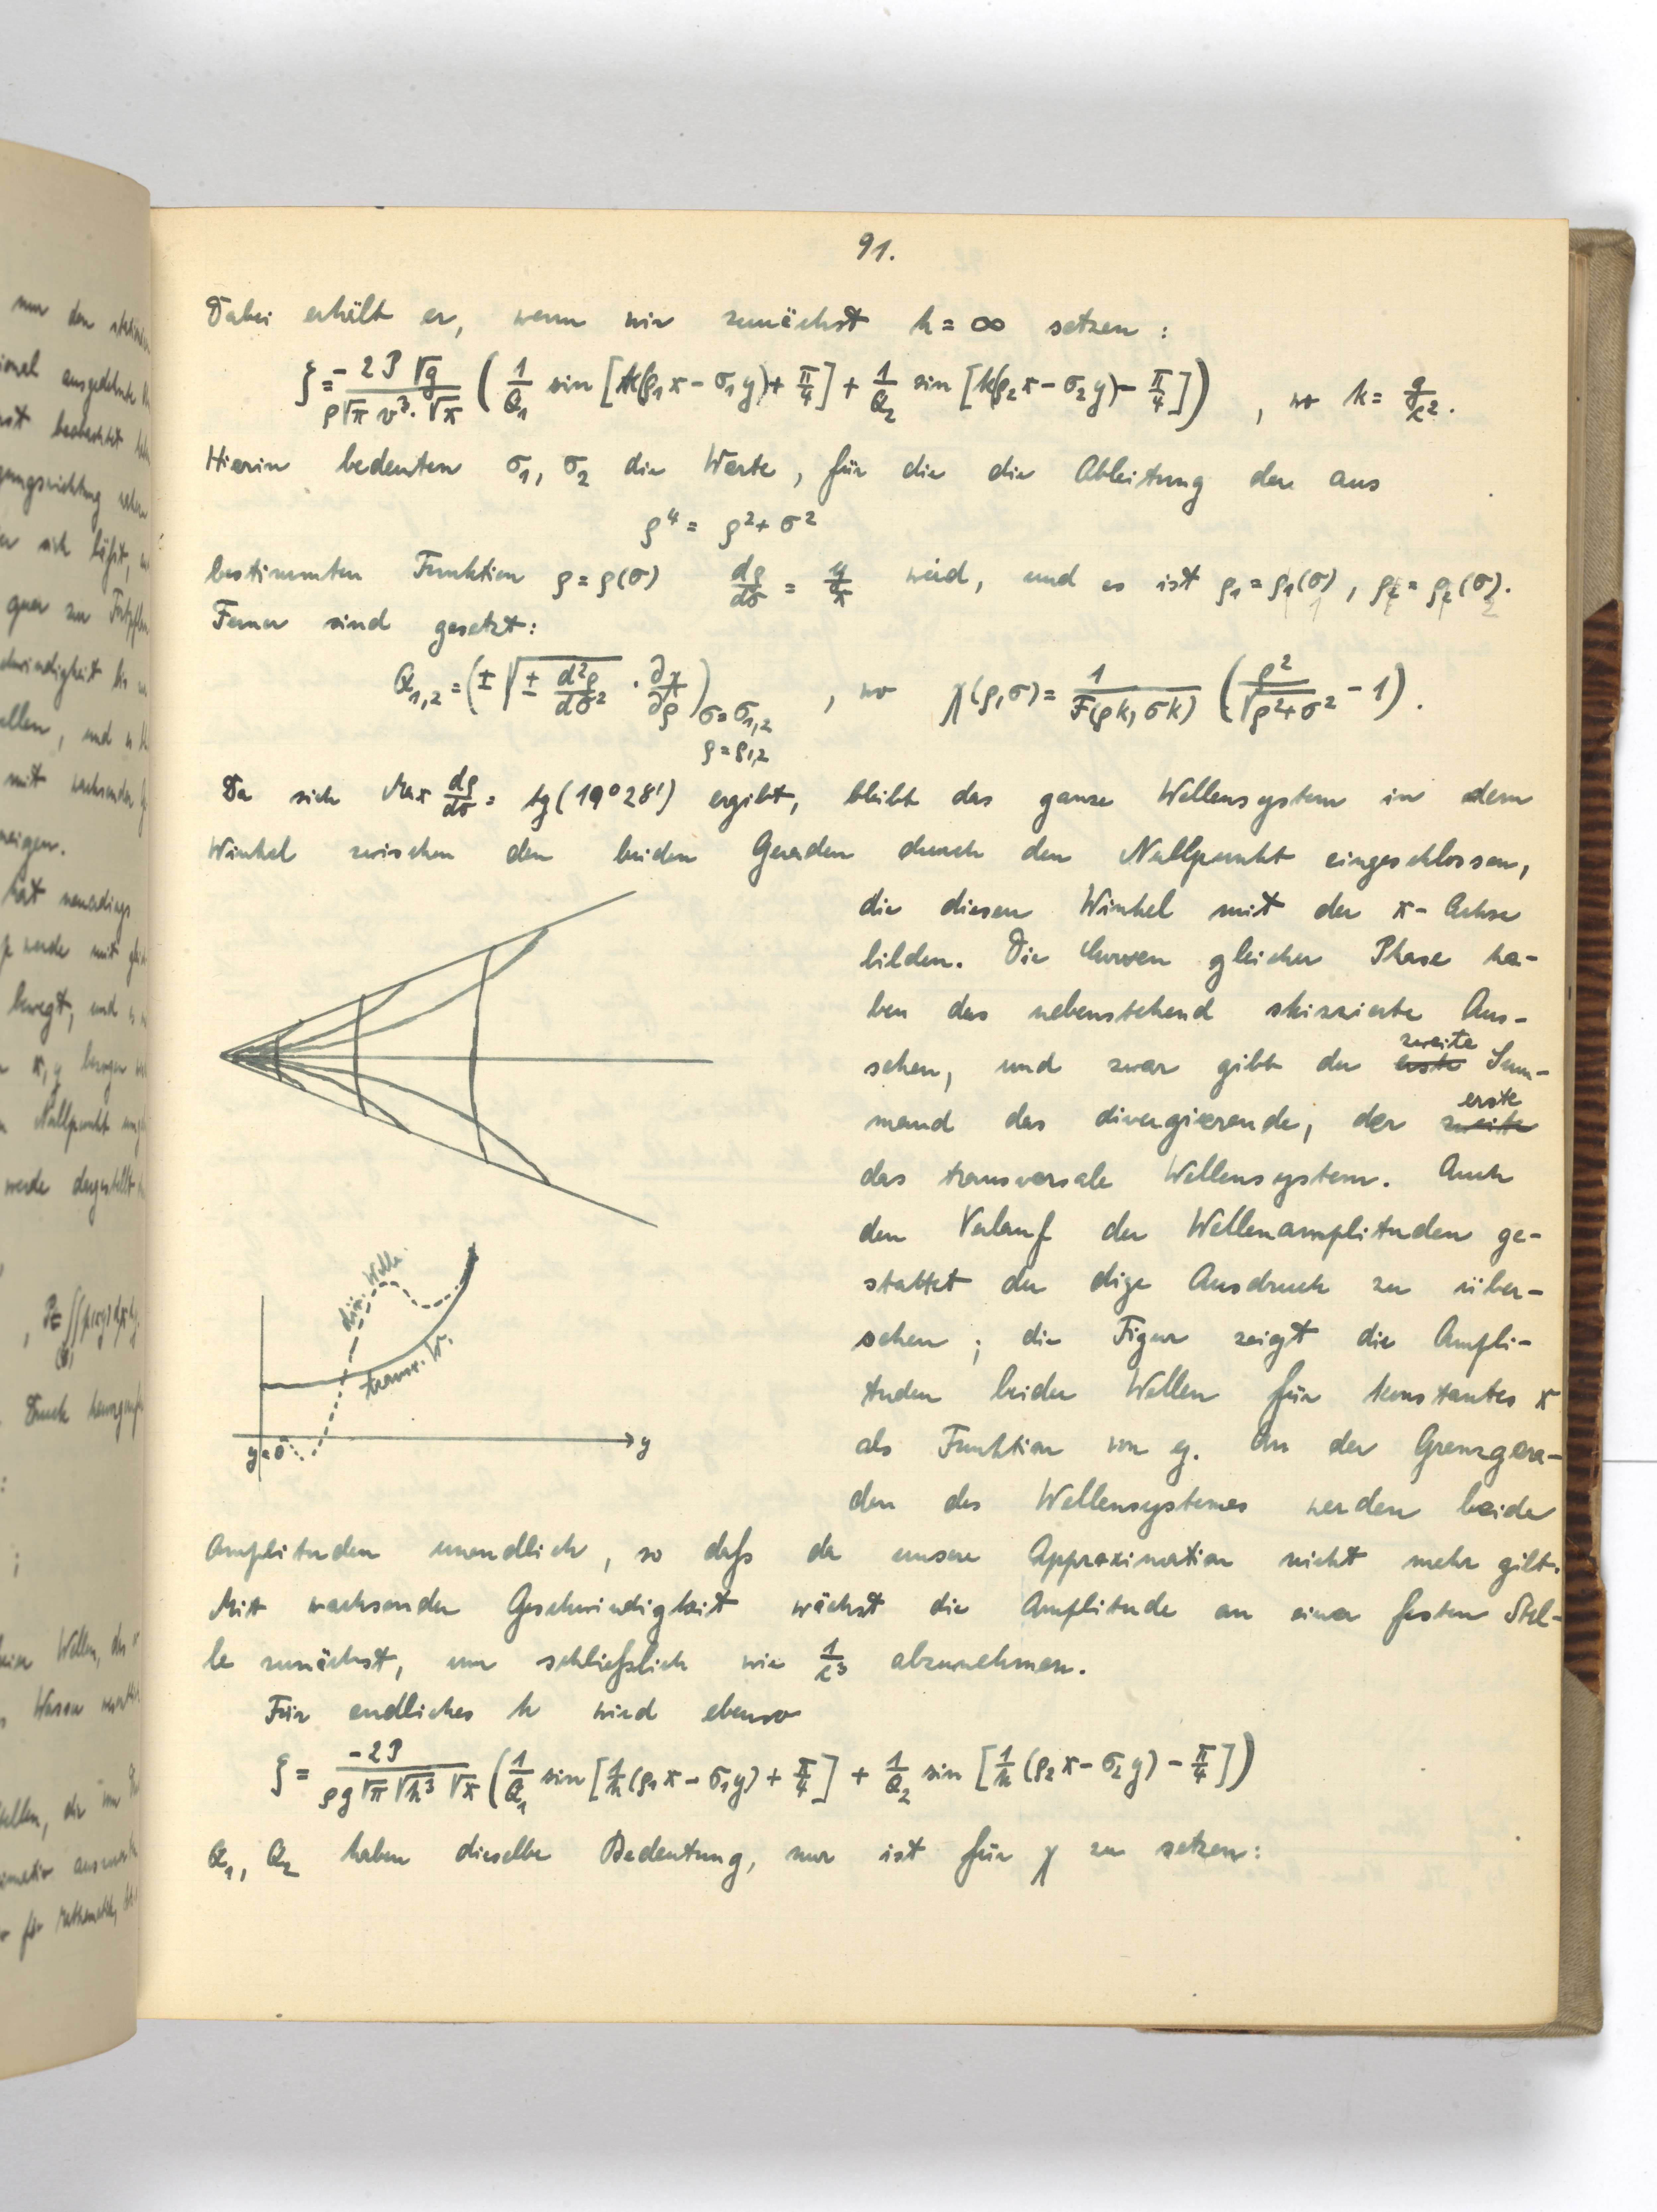 91.
Dabei erhält er, wenn wir zunächst h = ∞ setzen:
ζ = -2P√g / (ρ√π v³·√x) ( 1/Q₁ sin [k(ρ₁x - σ₁y) + π/4] + 1/Q₂ sin [k(ρ₂x - σ₂y) - π/4] ) , wo k = g/c².
Hierin bedeuten σ₁, σ₂ die Werte, für die die Ableitung der aus
ρ⁴ = ρ² + σ²
bestimmten Funktion ρ = ρ(σ) dρ/dσ = y/x wird, und es ist ρ₁ = ρ₁(σ₁), ρ₂ = ρ₂(σ₂).
Ferner sind gesetzt:
Q₁,₂ = (± √(± d²ρ/dσ²) · ∂χ/∂ρ) σ=σ₁,₂ ρ=ρ₁,₂ , wo χ(ρ,σ) = 1/F(ρk, σk) (ρ²/√(ρ²+σ²) - 1).
Da sich Max dρ/dσ = tg(19°28') ergibt, bleibt das ganze Wellensystem in dem
Winkel zwischen den beiden Geraden durch den Nullpunkt eingeschlossen,
die diesen Winkel mit der x-Achse
bilden. Die Kurven gleicher Phase ha-
ben das nebenstehend skizzierte Aus-
sehen, und zwar gibt der erste zweite Sum-
mand das divergierende, der zweite erste
das transversale Wellensystem. Auch
den Verlauf der Wellenamplituden ge-
stattet der obige Ausdruck zu über-
sehen; die Figur zeigt die Ampli-
tuden beider Wellen für konstantes x
als Funktion von y. An der Grenzgera-
den des Wellensystemes werden beide
div. Welle
transv. W.
y=0
y
Amplituden unendlich, so daſs da unsere Approximation nicht mehr gilt.
Mit wachsender Geschwindigkeit wächst die Amplitude an einer festen Stel-
le zunächst, um schlieſslich wie 1/c³ abzunehmen.
Für endliches h wird ebenso
ζ = -2P / (ρg√π √h³ √x) ( 1/Q₁ sin [1/h (ρ₁x - σ₁y) + π/4] + 1/Q₂ sin [1/h (ρ₂x - σ₂y) - π/4] )
Q₁, Q₂ haben dieselbe Bedeutung, nur ist für χ zu setzen: